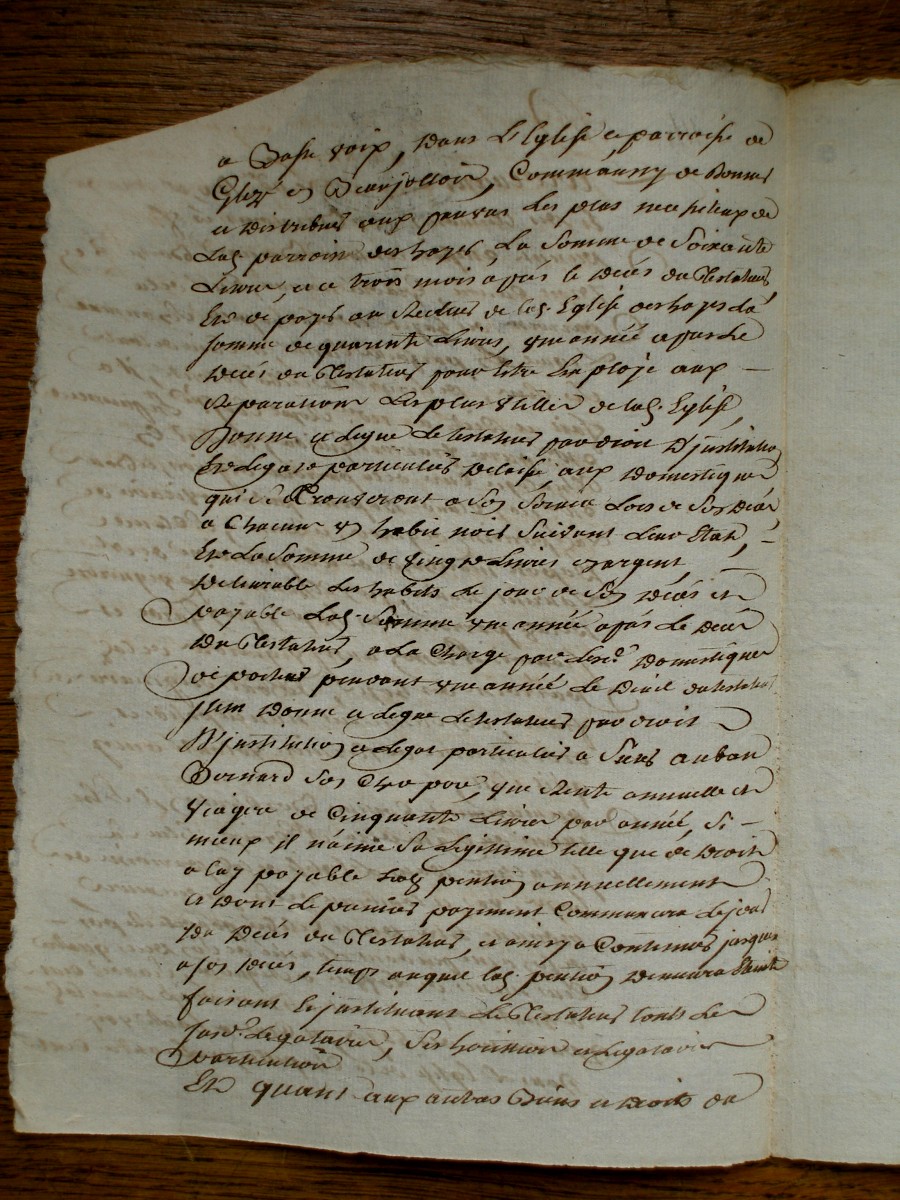 a Basse voix, dans L'Eglise et parroisse de
en Beaujollois, Commeansny de Donner
et distribuer aux pauvres les plus necessiteux de
lad. parroisse deshayes, La Somme de Soixante
Livres, et ce trois mois apres le deces du Testateur,
Et de payer au Recteur de lad. Eglise deshayes la
somme de quarente Livres, une année apres le
deces du Testateur pour Estre Employé aux —
Reparations les plus Utilles de lad. Eglise,
Donne et Legue le testateur par droit D'jnstitution
Et Legat particulier delaisse aux Domestiques
qui se Trouveront a son service Lors de son deces,
a Chacun un habit noir Suivant leur Etat, —
Et La Somme de vingt Livres d'argent, —
delivrable les habits le jour de son deces et
payable lad. Somme une année apres le deces
du Testateur, a La Charge par lesd. Domestiques
de porter pendant une année le Deuil du testateur
jtem donne et legue le testateur par droit
D'jnstitution et legat particulier a Sieur
Bernard son , une Rente annuelle et
Viagere de Cinquante Livres par année, Si —
mieux il n'aime sa Legitime telle que de Droit
a luy payable lad. pention annuellement
et dont le premier payement Commencera le jour
du deces du Testateur, et ainsy a Continuer jusques
a son deces, temps auquel lad. pention demeurera Eteinte
faisant et jnstituant le Testateur touts les
susd. Legataires, ses heritiers et legataires
particuliers
Et quant aux autres Biens et droits du